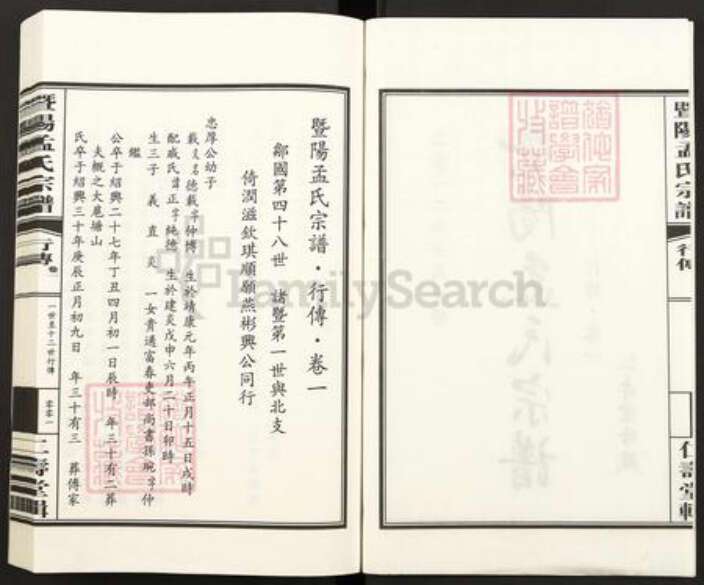 暨陽孟氏宗譜
行傳
仁壽堂輯
暨陽孟氏宗譜·行傳·卷一
鄒國第四十八世 諸暨第一世與北支
倚潤滋欽琪順願燕彬興公同行
忠厚公幼子
載又名德載字仲博 生於靖康元年丙午正月十五日戌時
配戚氏諱正字純德 生於建炎戊申六月二十日卯時
生三子 義 直 炎 一女貴適富春吏部尚書孫琬字仲
鑑
公卒于紹興二十七年丁丑四月初一日辰時 年三十有二葬
夫概之大扈塘山
氏卒于紹興三十年庚辰正月初九日 年三十有三 葬傅家
暨陽孟氏宗譜
行傳 卷一
一世至十二世行傳
零零一
仁壽堂輯
FamilySearch